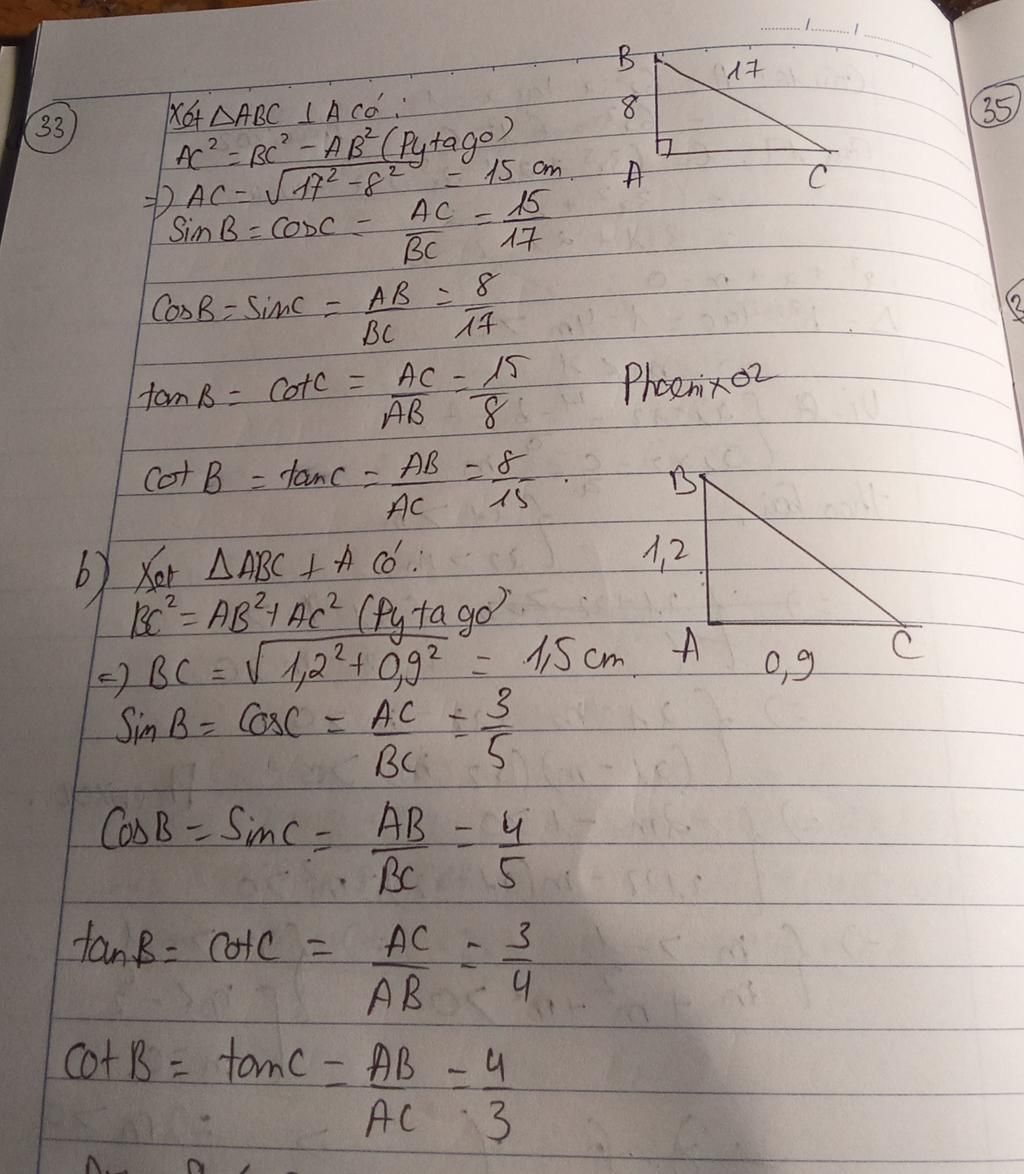 33
Xét ΔABC ⊥ A có:
AC² = BC² - AB² (Pytago)
=) AC = √17² - 8² = 15 cm.
SinB = CosC = AC/BC = 15/17
CosB = SinC = AB/BC = 8/17
tanB = cotC = AC/AB = 15/8
Phoenix02
cot B = tanC = AB/AC = 8/15.
B
17
8
A
C
b) Xét ΔABC ⊥ A có:
BC² = AB² + AC² (Pytago).
=) BC = √1,2² + 0,9² = 1,5 cm.
SinB = CosC = AC/BC = 3/5
CosB = SinC = AB/BC = 4/5
tanB = cotC = AC/AB = 3/4
cotB = tanC = AB/AC = 4/3
B
1,2
A
0,9
C
35